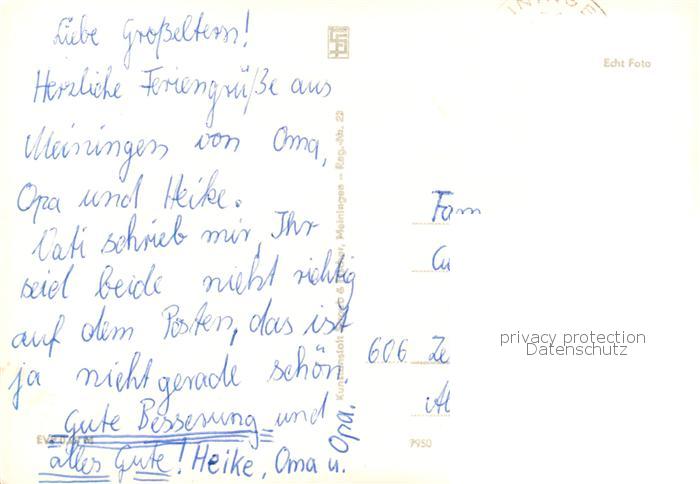 Liebe Großeltern!
Herzliche Feriengrüße aus
Meiningen von Oma,
Opa und Heike.
Vati schrieb mir, Ihr
seid beide nicht richtig
auf dem Posten, das ist
ja nicht gerade schön.
Gute Besserung und
alles Gute! Heike, Oma u.
Opa.
Echt Foto
Meiningen – Reg.-Nr. 22
Fam
606 Ze
7950
privacy protection
Datenschutz